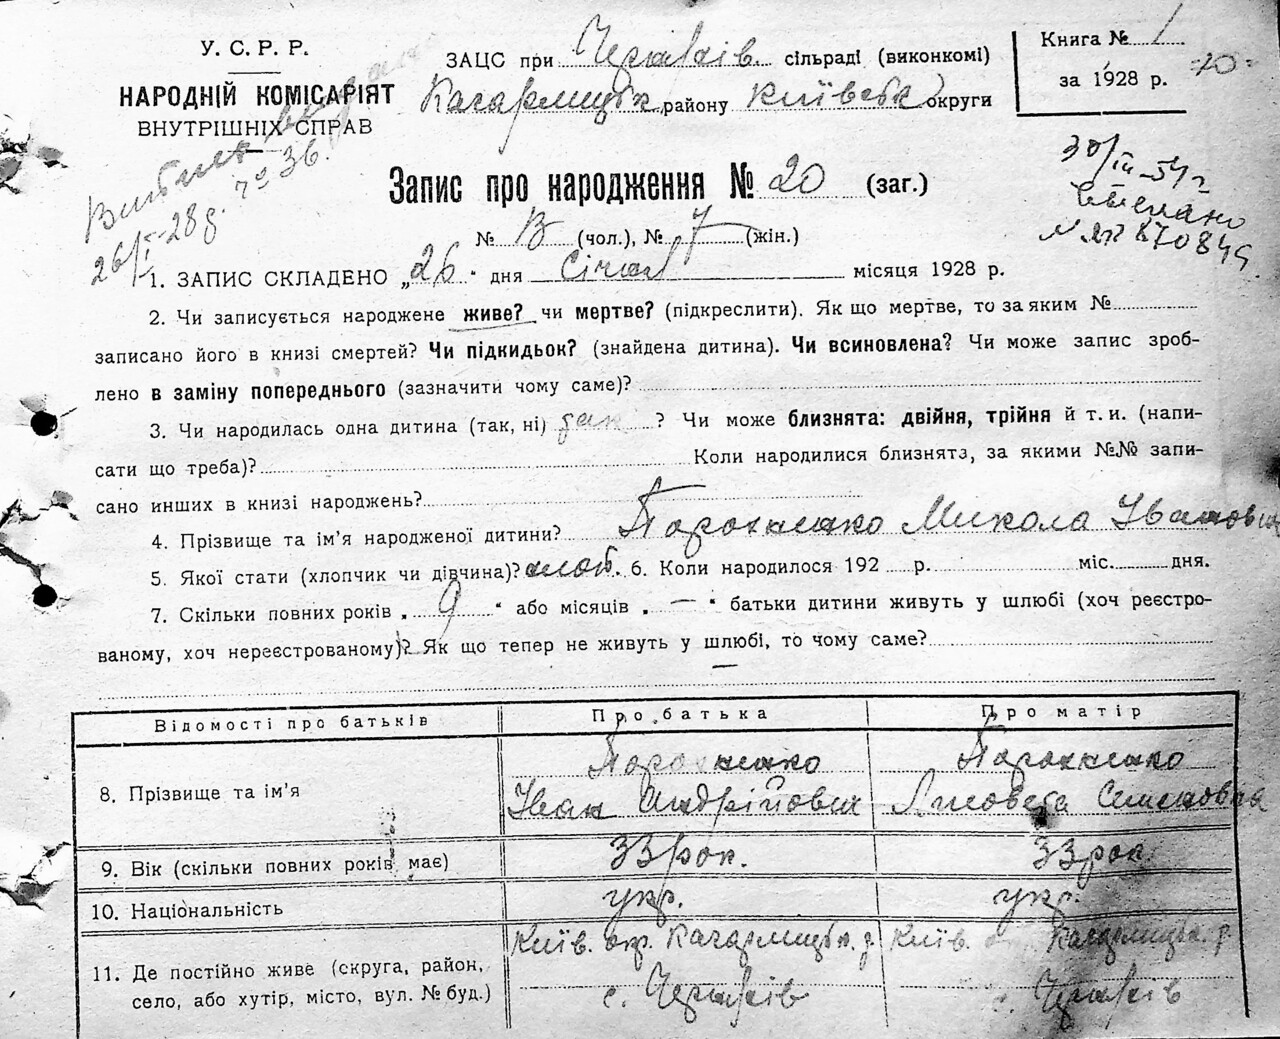 У. С. Р. Р.
НАРОДНІЙ КОМІСАРІЯТ
ВНУТРІШНІХ СПРАВ
ЗАЦС при Черняхів. сільраді (виконкомі)
Кагарлицьк. району Київськ. округи
Книга № 1
за 1928 р.
Запис про народження № 20 (заг.)
№ 13 (чол.), № 7 (жін.)
1. ЗАПИС СКЛАДЕНО „26" дня Січня місяця 1928 р.
2. Чи записується народжене живе? чи мертве? (підкреслити). Як що мертве, то за яким №
записано його в книзі смертей? Чи підкидьок? (знайдена дитина). Чи всиновлена? Чи може запис зроб-
лено в заміну попереднього (зазначити чому саме)?
3. Чи народилась одна дитина (так, ні) так ? Чи може близнята: двійня, трійня й т. и. (напи-
сати що треба)? Коли народилися близнята, за якими №№ запи-
сано инших в книзі народжень?
4. Прізвище та ім'я народженої дитини? Микола Іванович
5. Якої стати (хлопчик чи дівчина)? хлоп. 6. Коли народилося 192 р. міс. дня.
7. Скільки повних років „ 9 " або місяців „ — " батьки дитини живуть у шлюбі (хоч реєстро-
ваному, хоч нереєстрованому)? Як що тепер не живуть у шлюбі, то чому саме? —
Відомості про батьків Про батька Про матір
8. Прізвище та ім'я
Іван Андрійович Лисовета Семеновна
9. Вік (скільки повних років має) 33 рок. 33 рок.
10. Національність укр. укр.
Київ. окр. Кагарлицьк. р. Київ. окр. Кагарлицьк. р.
11. Де постійно живе (округа, район,
село, або хутір, місто, вул. № буд.) с. Черняхів с. Черняхів